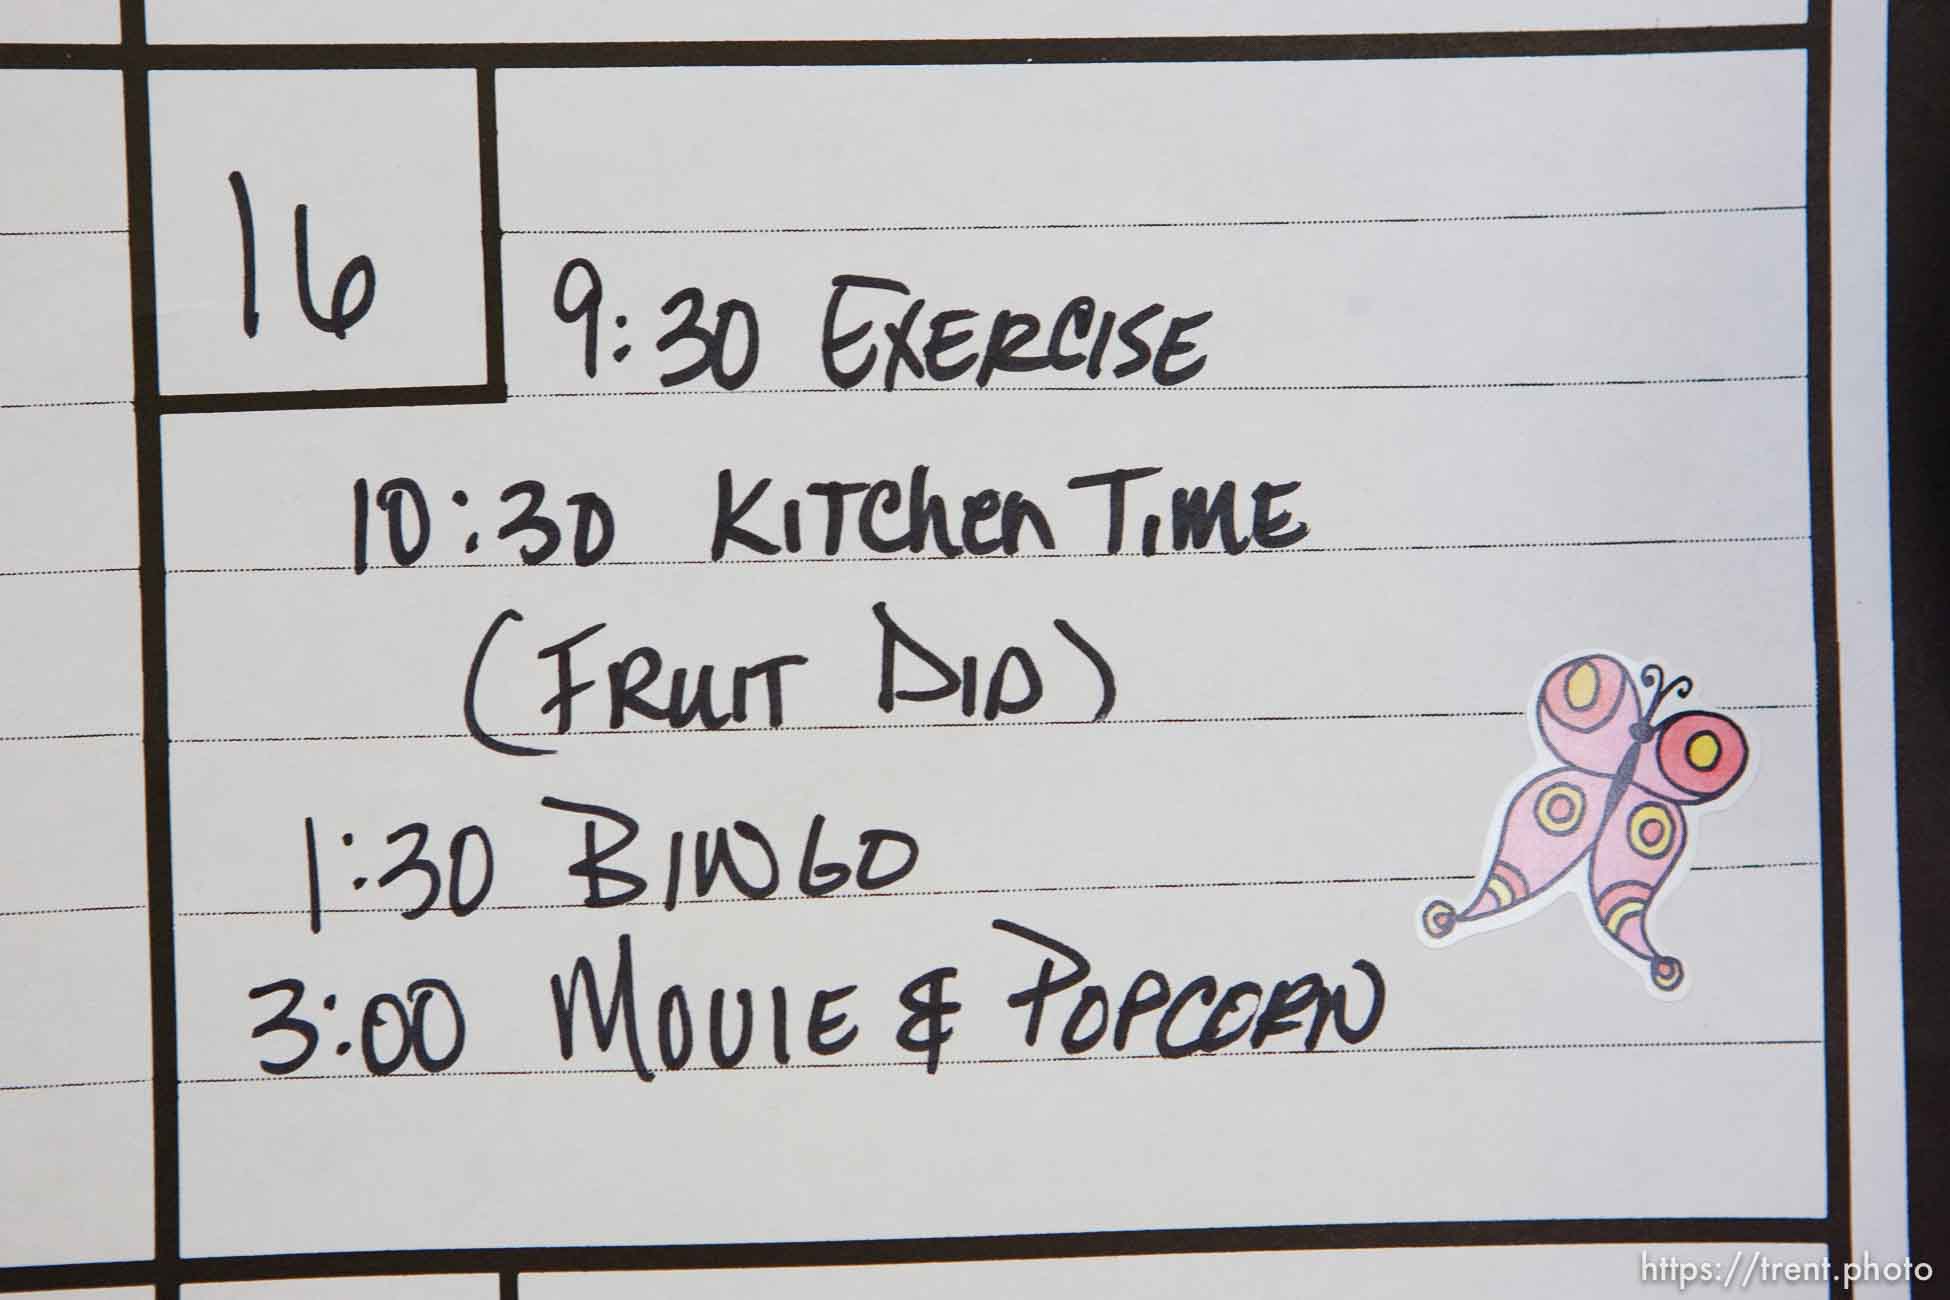 16
9:30 Exercise
10:30 Kitchen Time
(Fruit Did)
1:30 Bingo
3:00 Movie & Popcorn
https://trent.photo